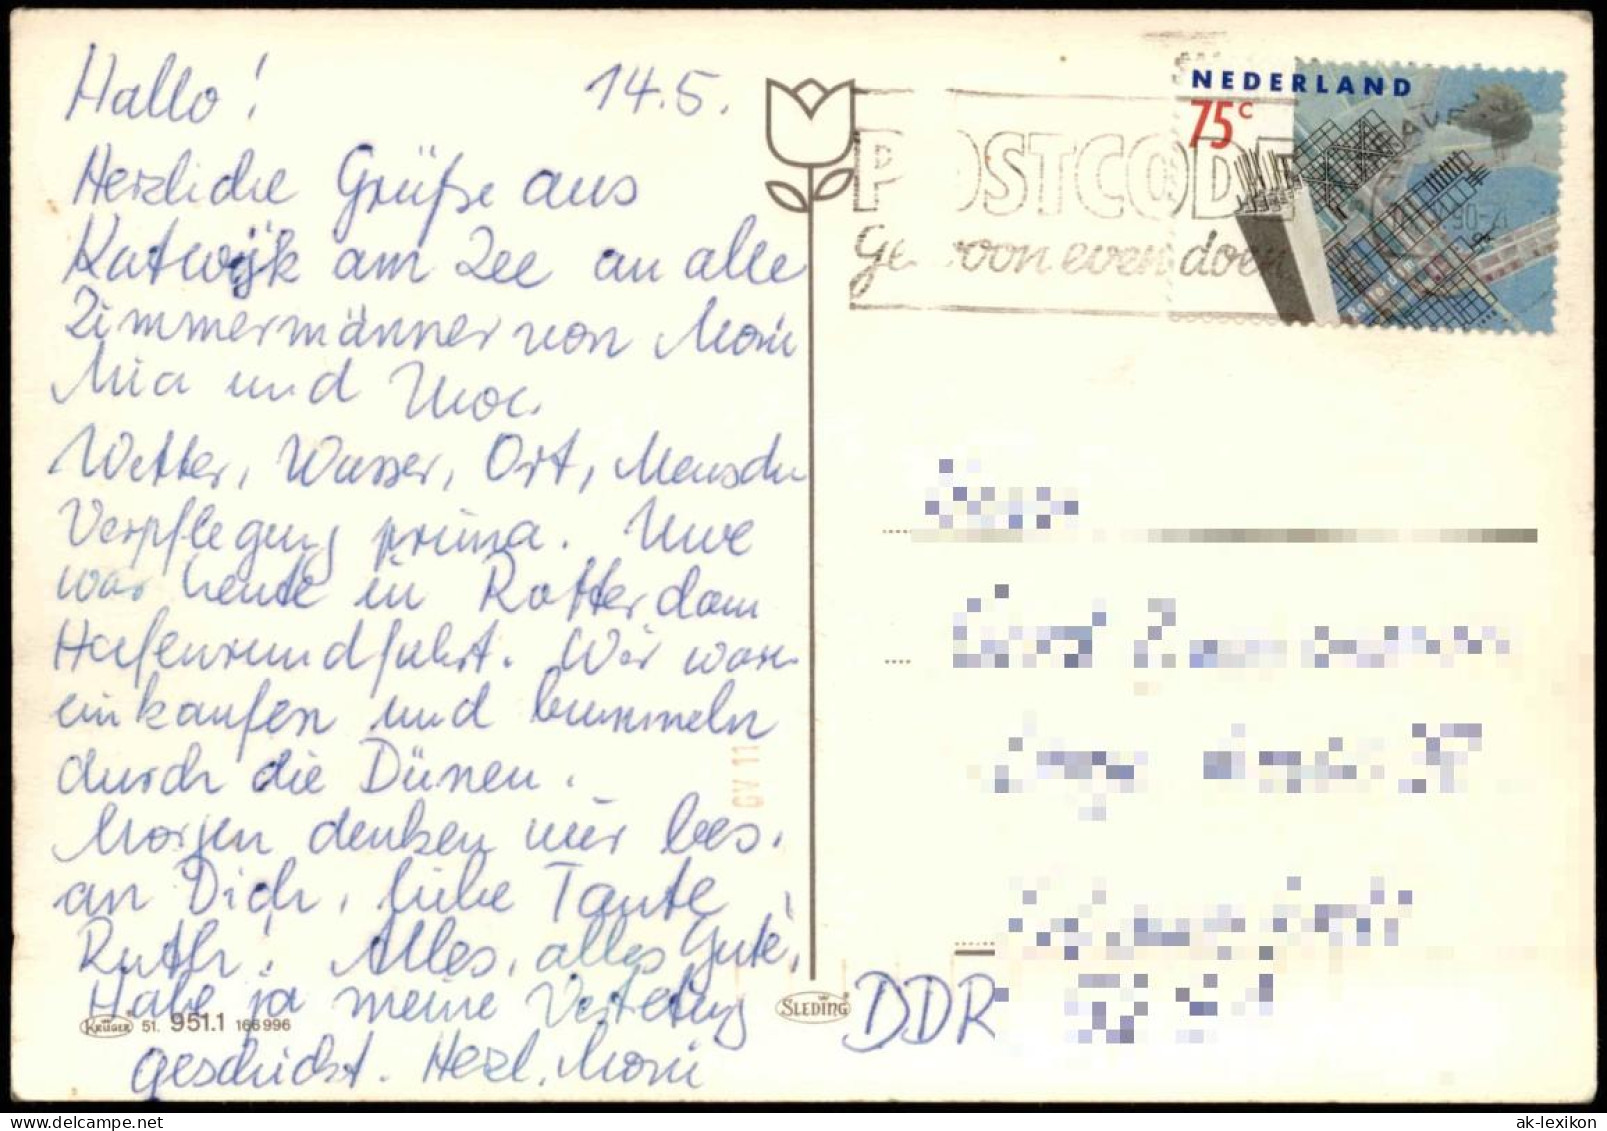 Hallo! 14.5.
Herzliche Grüße aus
Katwijk am Zee an alle
Zimmermänner von Moni
Mia und Uwe.
Wetter, Wasser, Ort, Mensch
Verpflegung prima. Uwe
war heute in Rotterdam
Hafenrundfahrt. Wir waren
einkaufen und bummeln
durch die Dünen.
Morgen denken wir bes.
an Dich, liebe Tante
Ruth! Alles, alles Gute,
Habe ja meine Vertretung
geschickt. Herzl. Moni
KRÜGER 51. 951.1 166996
SLEDING
NEDERLAND
75c
POSTCODE
Gewoon even doen
GV 11
DDR
ak-lexikon